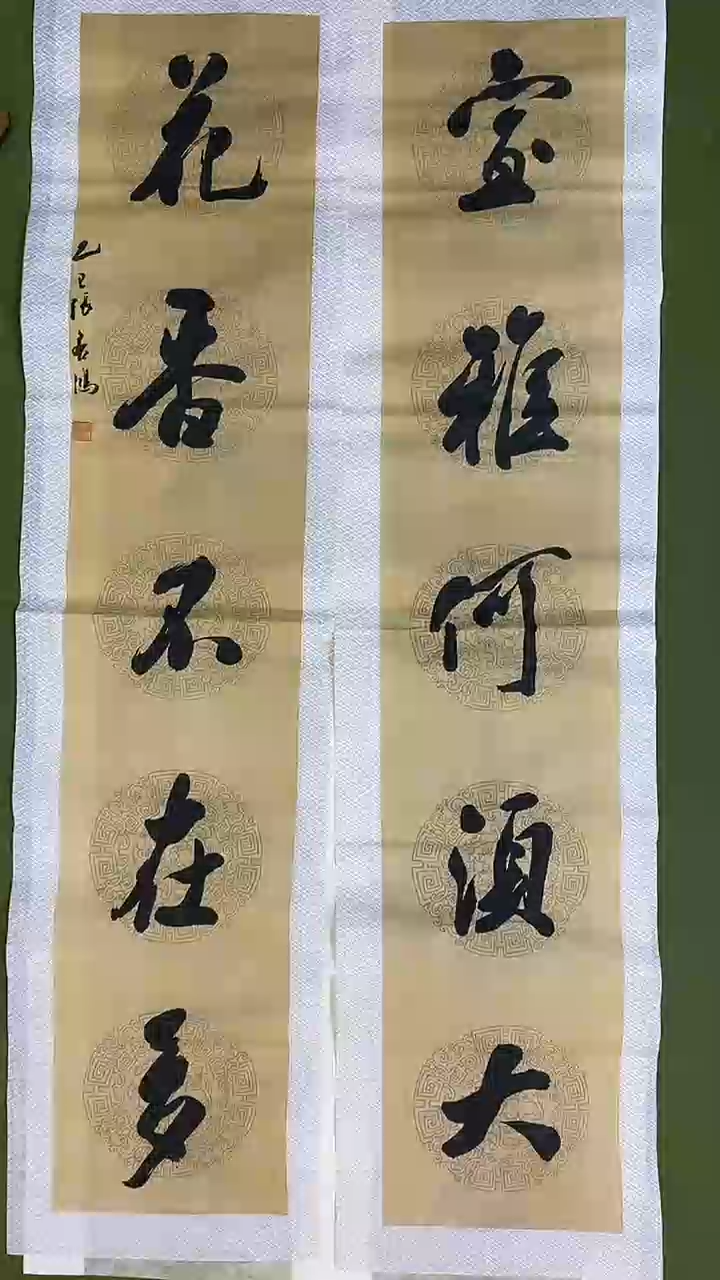 室雅何须大
花香不在多
乙巳張